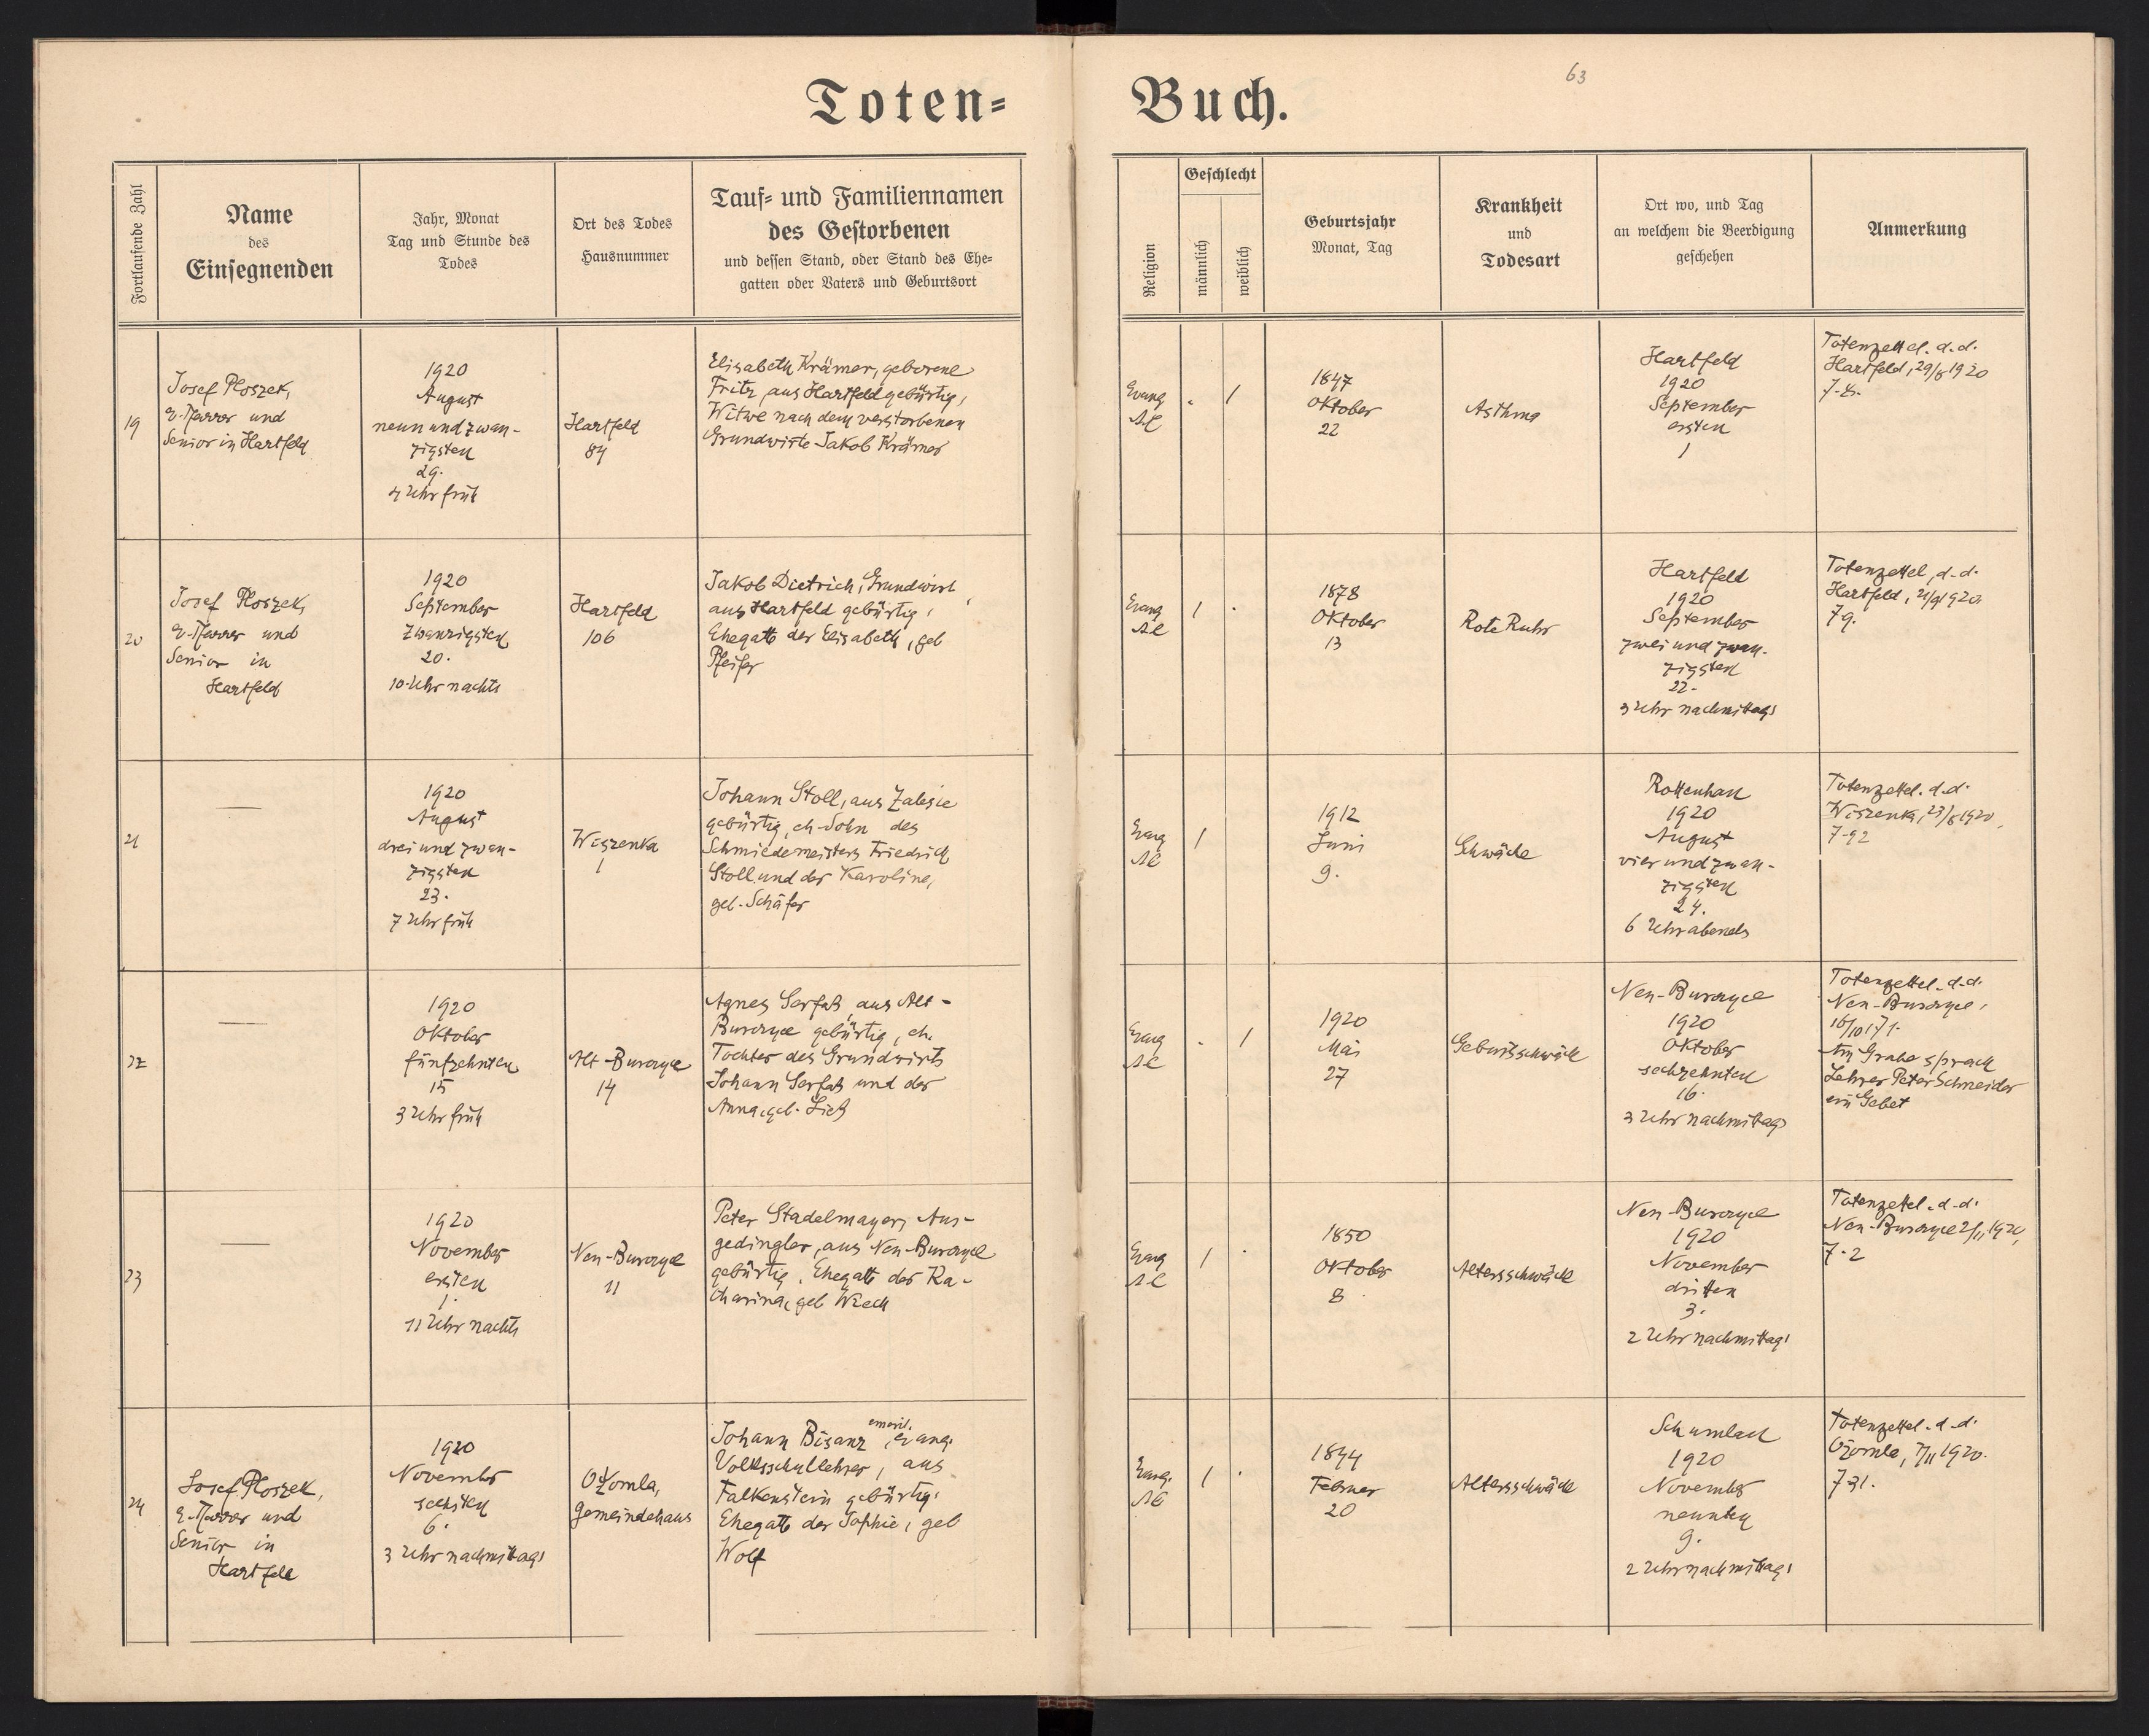 63
Toten=
Buch.
Fortlaufende Zahl
Name
des
Einsegnenden
Jahr, Monat
Tag und Stunde des
Todes
Ort des Todes
Hausnummer
Tauf= und Familiennamen
des Gestorbenen
und dessen Stand, oder Stand des Ehe=
gatten oder Vaters und Geburtsort
Religion
Geschlecht
männlich
weiblich
Geburtsjahr
Monat, Tag
Krankheit
und
Todesart
Ort wo, und Tag
an welchem die Beerdigung
geschehen
Anmerkung
19
Josef Ploszek,
e. Pfarrer und
Senior in Hartfeld
1920
August
neun und zwan-
zigsten
29.
4 Uhr früh
Hartfeld
84
Elisabeth Krämer, geborene
Fritz, aus Hartfeld gebürtig,
Witwe nach dem verstorbenen
Grundwirte Jakob Krämer
Evang
AC
. 1
1847
Oktober
22
Asthma
Hartfeld
1920
September
ersten
1
Totenzettel. d. d.
Hartfeld, 29/8 1920
20
Josef Ploszek,
e. Pfarrer und
Senior in
Hartfeld
1920
September
Zwanzigsten
20.
10 Uhr nachts
Hartfeld
106
Jakob Dietrich, Grundwirt,
aus Hartfeld gebürtig,
Ehegatte der Elisabeth, geb
Pfeifer
Evang
AC
1 .
1878
Oktober
13
Rote Ruhr
Hartfeld
1920
September
zwei und zwan-
zigsten
22.
3 Uhr nachmittags
Totenzettel, d. d.
Hartfeld, 21/9 1920.
21
—
1920
August
drei und zwan-
zigsten
23.
7 Uhr früh
Wiszenka
1
Johann Stoll, aus Zalesie
gebürtig, eh. Sohn des
Schmiedemeisters Friedrich
Stoll und der Karoline,
geb. Schäfer
Evang
AC
1
1912
Juni
9.
Schwäche
Rottenhan
1920
August
vier und zwan-
zigsten
24.
6 Uhr abends
Totenzettel. d. d.
Wiszenka, 23/8 1920,
22
—
1920
Oktober
fünfzehnten
15
3 Uhr früh
Alt-Burczyce
14
Agnes Serfas, aus Alt-
Burczyce gebürtig, eh.
Tochter des Grundwirts
Johann Serfas und der
Anna, geb.
Evang
AC
. 1
1920
Mai
27
Geburtsschwäche
Neu-Burczyce
1920
Oktober
sechzehnten
16.
3 Uhr nachmittags
Totenzettel. d. d.
Neu-Burczyce,
Am Grabe sprach
Lehrer Peter Schneider
ein Gebet
23
—
1920
November
ersten
1.
11 Uhr nachts
Neu-Burczyce
11
Peter Stadelmayer, Aus-
gedingler, aus Neu-Burczyce
gebürtig, Ehegatte der Ka-
tharina, geb
Evang
AC
1 .
1850
Oktober
8
Altersschwäche
Neu-Burczyce
1920
November
dritten
3.
2 Uhr nachmittags
Totenzettel. d. d.
Neu-Burczyce 2/11 1920,
24
Josef Ploszek,
e. Pfarrer und
Senior in
Hartfeld
1920
November
sechsten
6.
3 Uhr nachmittags
Ożomla,
Gemeindehaus
Johann Bisanz, emerit. evang.
Volksschullehrer, aus
Falkenstein gebürtig,
Ehegatte der Sophie, geb
Wolf
Evang.
AC
1 .
1844
Februar
20
Altersschwäche
Schumlau
1920
November
neunten
9.
2 Uhr nachmittags
Totenzettel. d. d.
Ożomla, 7/11 1920.